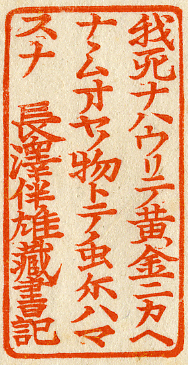 我死ナハウリテ黄金ニカヘ
ナヽムオヤノ物トテ虫尓ハマ
スナ　長澤伴雄藏書記